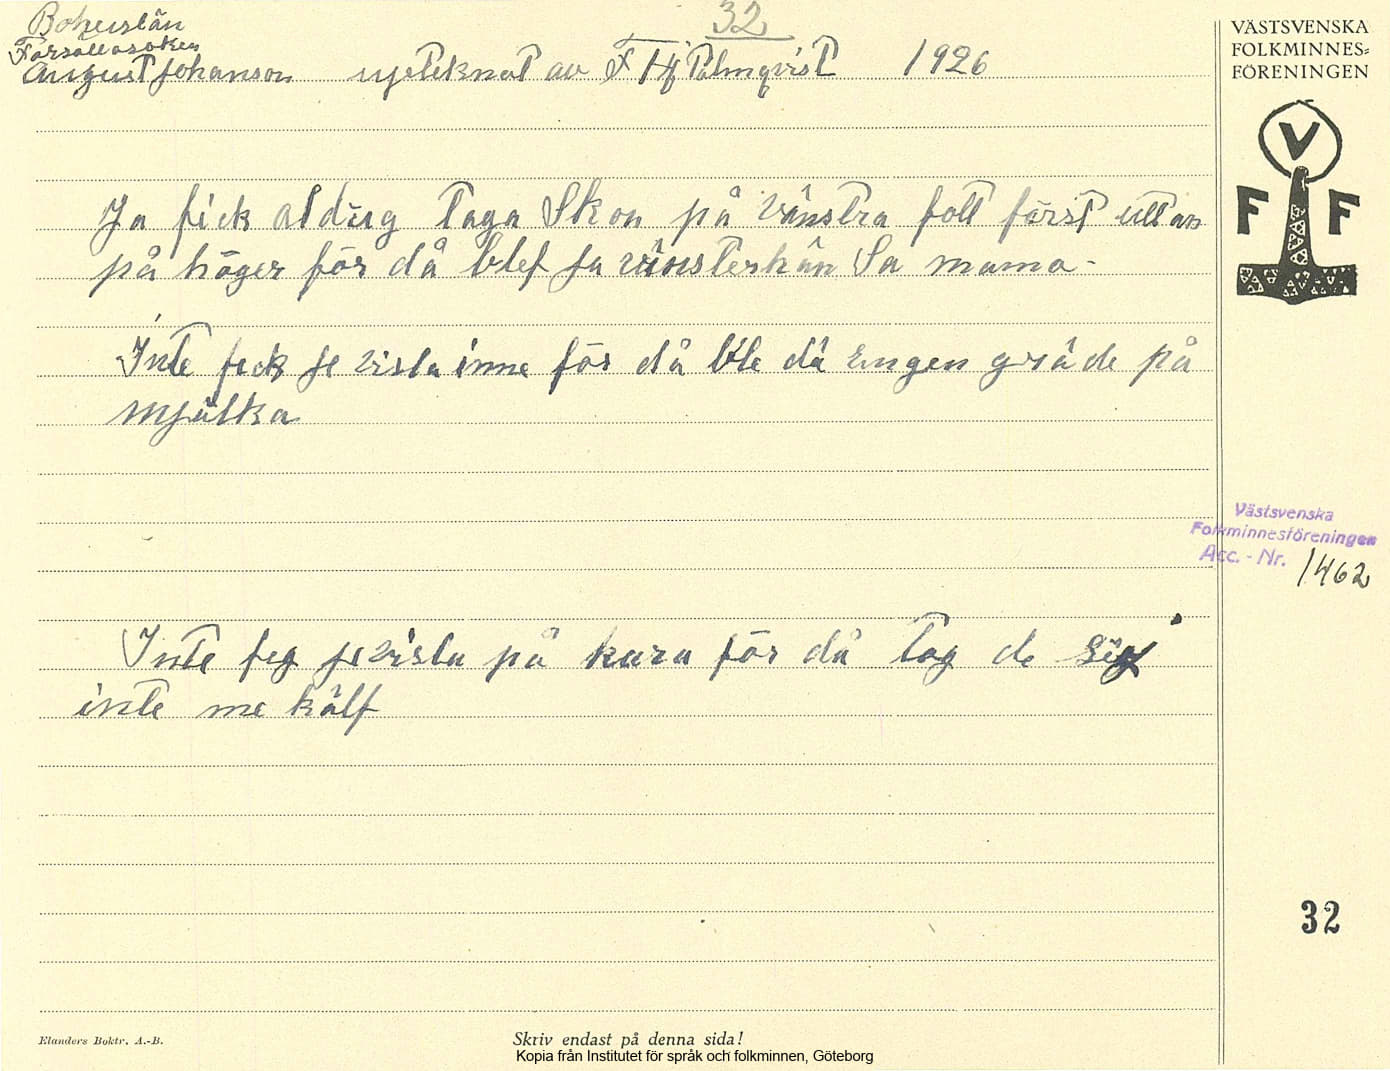 32
Bohuslän
Forsallasoken
August Johanson upteknat av F Hj Palmqvist 1926
VÄSTSVENSKA
FOLKMINNES-
FÖRENINGEN
V
F F
Ja fick aldrig taga Skon på vänstra fott först uttan
på höger för då blef ja vänsterhän Sa mama-
Inte feck je visla inne för då ble dä ingen gräde på
mjälka
Västsvenska
Folkminnesföreningen
Acc.-Nr. 1462
Inte feg je visla på kara för då tog de sig
inte me kalf
32
Elanders Boktr. A.-B.
Skriv endast på denna sida!
Kopia från Institutet för språk och folkminnen, Göteborg